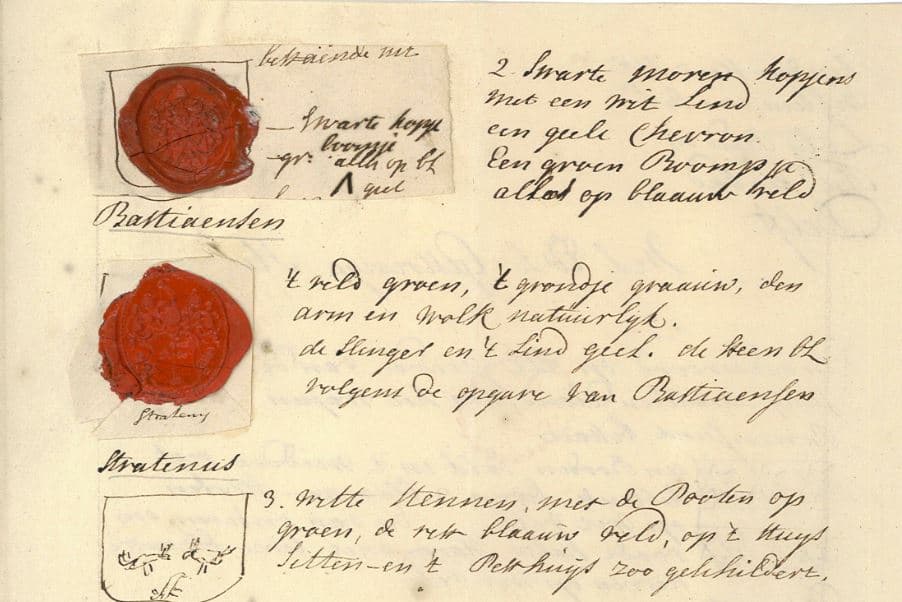 bekainde uit
— Swarte kopje
boompje
gr: alles op bl
geel
Bastiaensen
2 Swarte moren kopjens
met een wit Lind
een geele Chevron.
Een groen Boompje
alles op blaauw veld
't veld groen, 't grondje graauw, den
arm en wolk natuurlyk.
de Slinger en 't Lind geel. de steen bl
volgens de opgave van Bastiaensen
Stratenus
3. witte Hennen, met de Pooten op
groen, de rest blaauw veld, op 't Huys
Sitten en 't Pesthuys zoo geschildert.